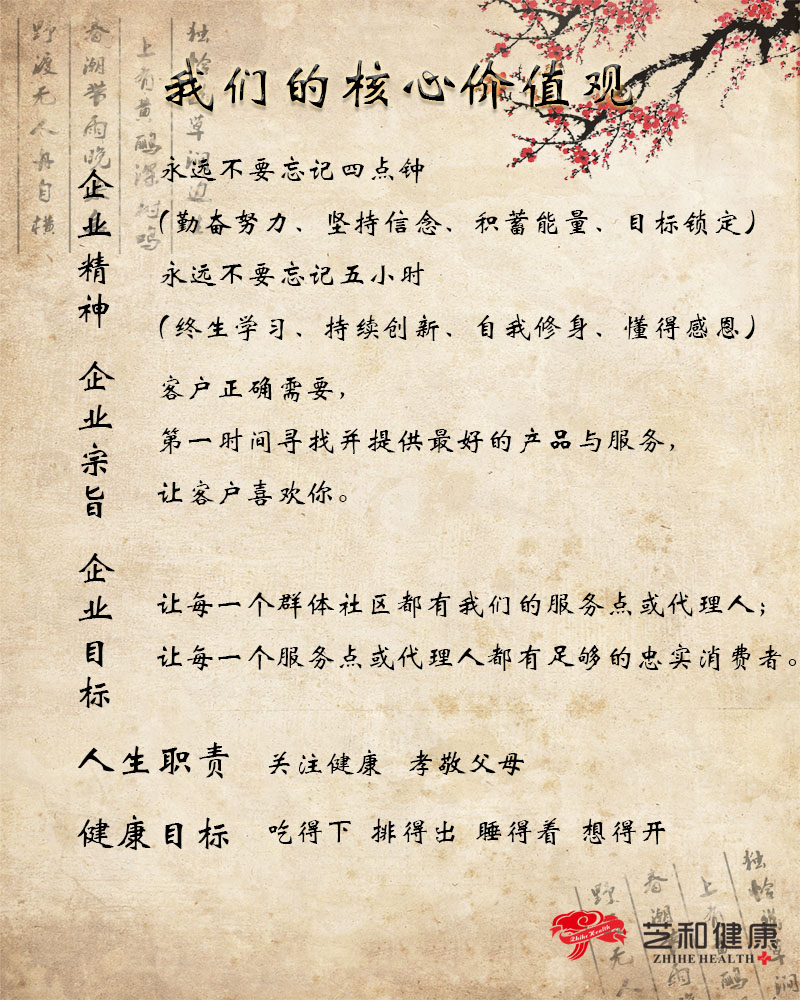 我们的核心价值观
企业精神
永远不要忘记四点钟
（勤奋努力、坚持信念、积蓄能量、目标锁定）
永远不要忘记五小时
（终生学习、持续创新、自我修身、懂得感恩）
企业宗旨
客户正确需要，
第一时间寻找并提供最好的产品与服务，
让客户喜欢你。
企业目标
让每一个群体社区都有我们的服务点或代理人；
让每一个服务点或代理人都有足够的忠实消费者。
人生职责 关注健康 孝敬父母
健康目标 吃得下 排得出 睡得着 想得开
Zhihe Health
芝和健康
ZHIHE HEALTH
野渡无人舟自横
春潮带雨晚
上有黄鹂深树鸣
独怜
草涧边
独怜
草涧
上有黄鹂
春潮
带雨
野
无人